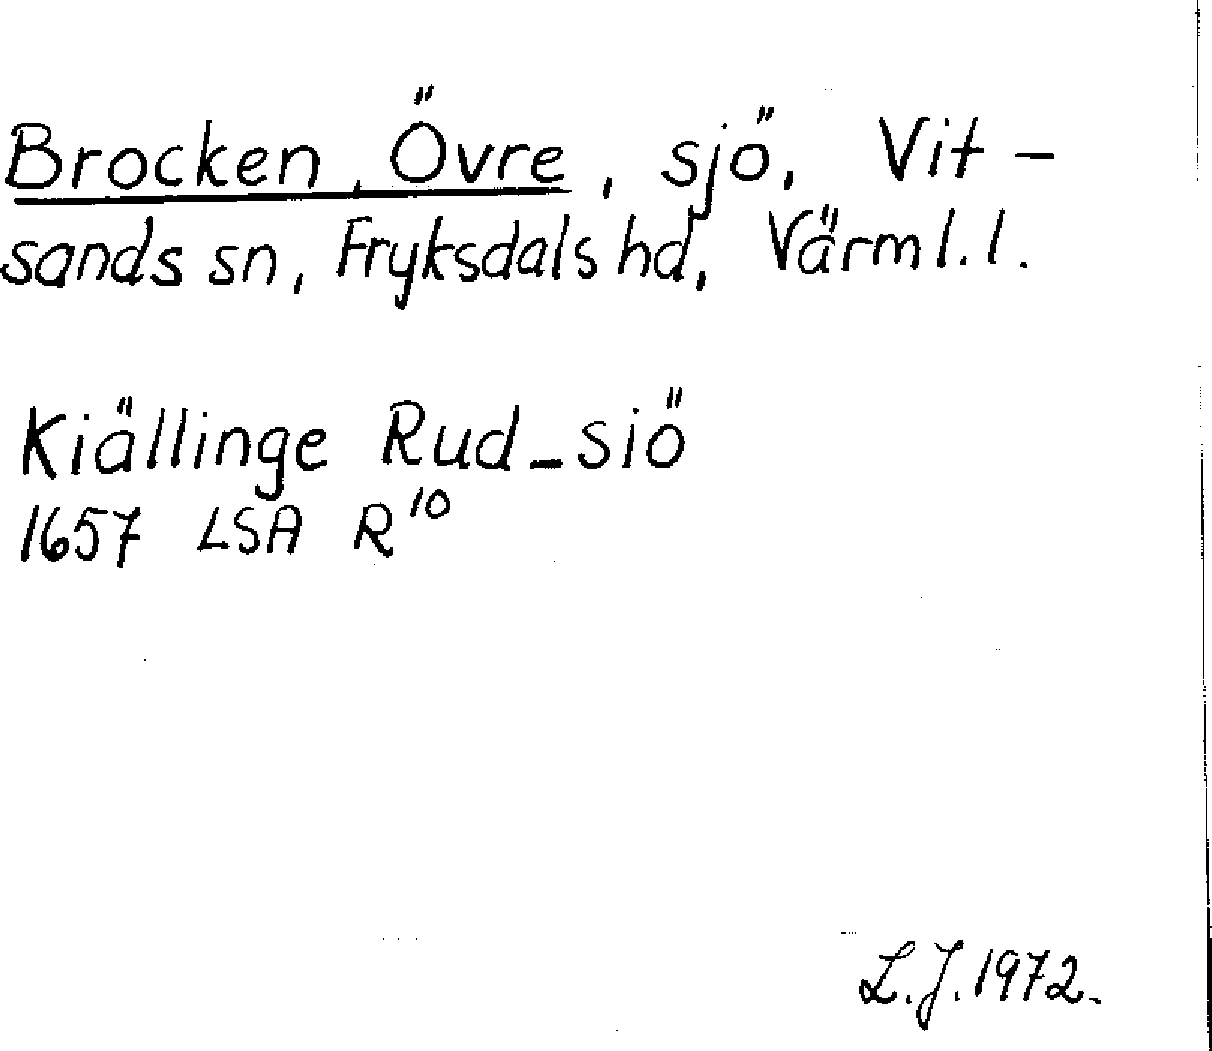 Brocken, Övre, sjö, Vit-
sands sn, Fryksdals hd, Värml. l.
Kiällinge Rud-siö
1657 LSA R¹⁰
L.J. 1972.